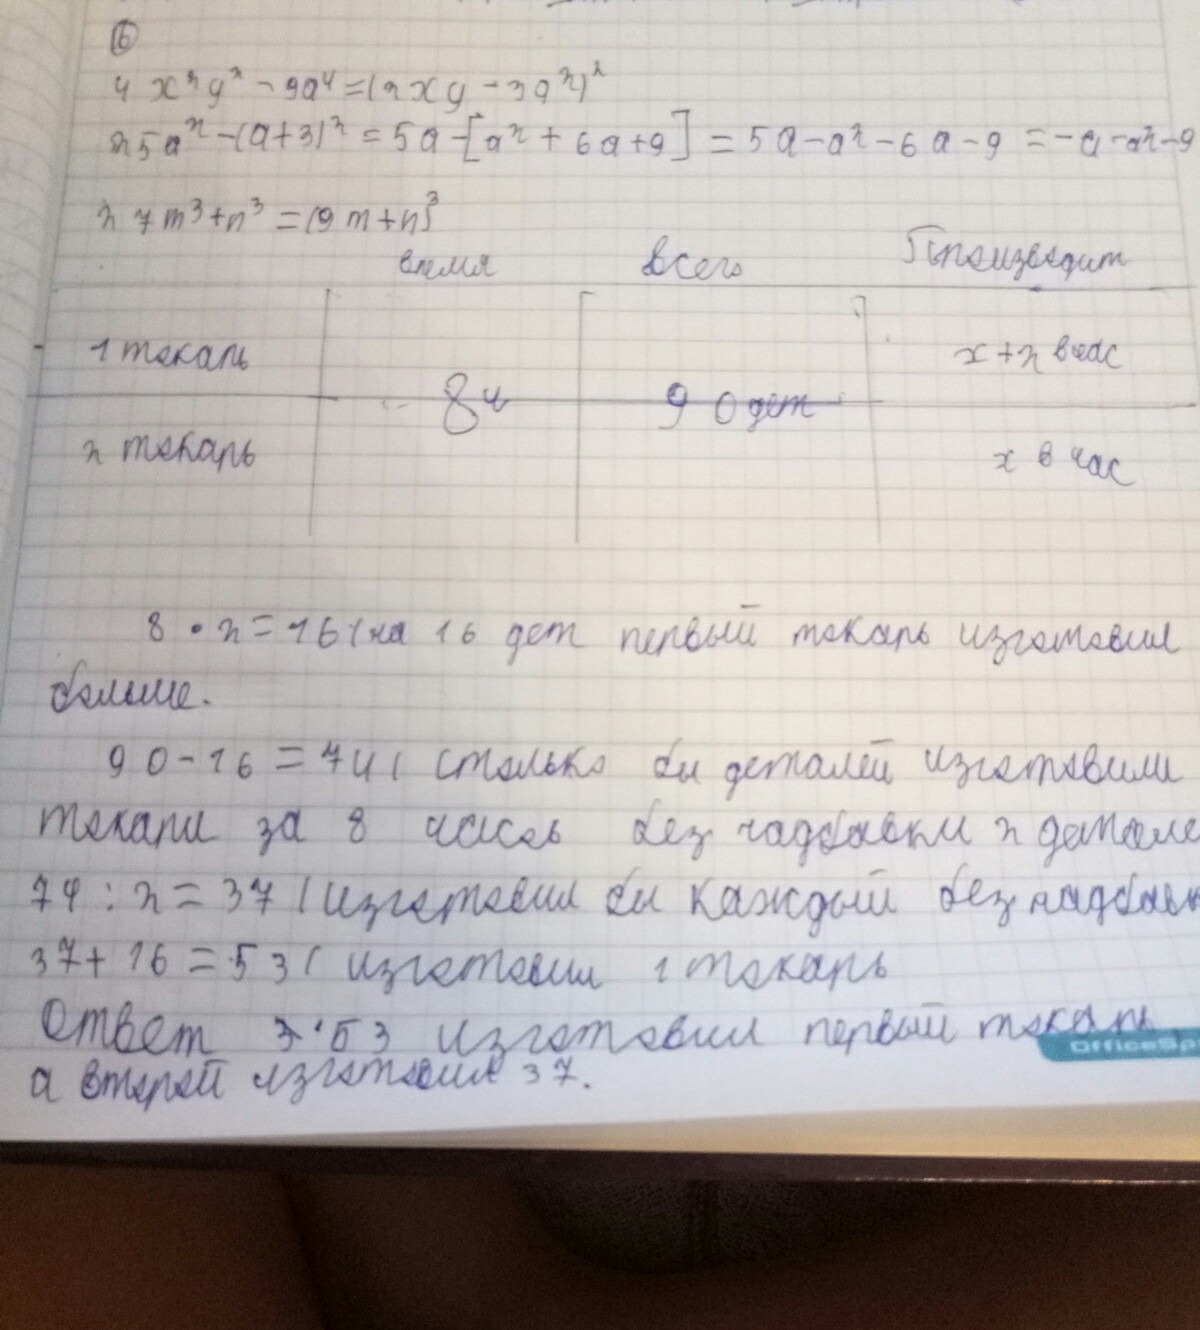 ⑥
4x²y² - 9a⁴ = (2xy - 3a²)²
25a² - (a+3)² = 5a - [a² + 6a + 9] = 5a - a² - 6a - 9 = -a - a² - 9
27m³ + n³ = (9m + n)³
время всего Производит
1 токарь x + 2 в час
8ч 90 дет
2 токарь x в час
8 · 2 = 16 (на 16 дет первый токарь изготовил
больше.
90 - 16 = 74 ( столько бы деталей изготовили
токари за 8 часов без надбавки 2 детале
74 : 2 = 37 ( изготовил бы каждый без надбавк
37 + 16 = 53 ( изготовил 1 токарь
Ответ 53 изготовил первый токарь
а второй изготовил 37.
OfficeSp